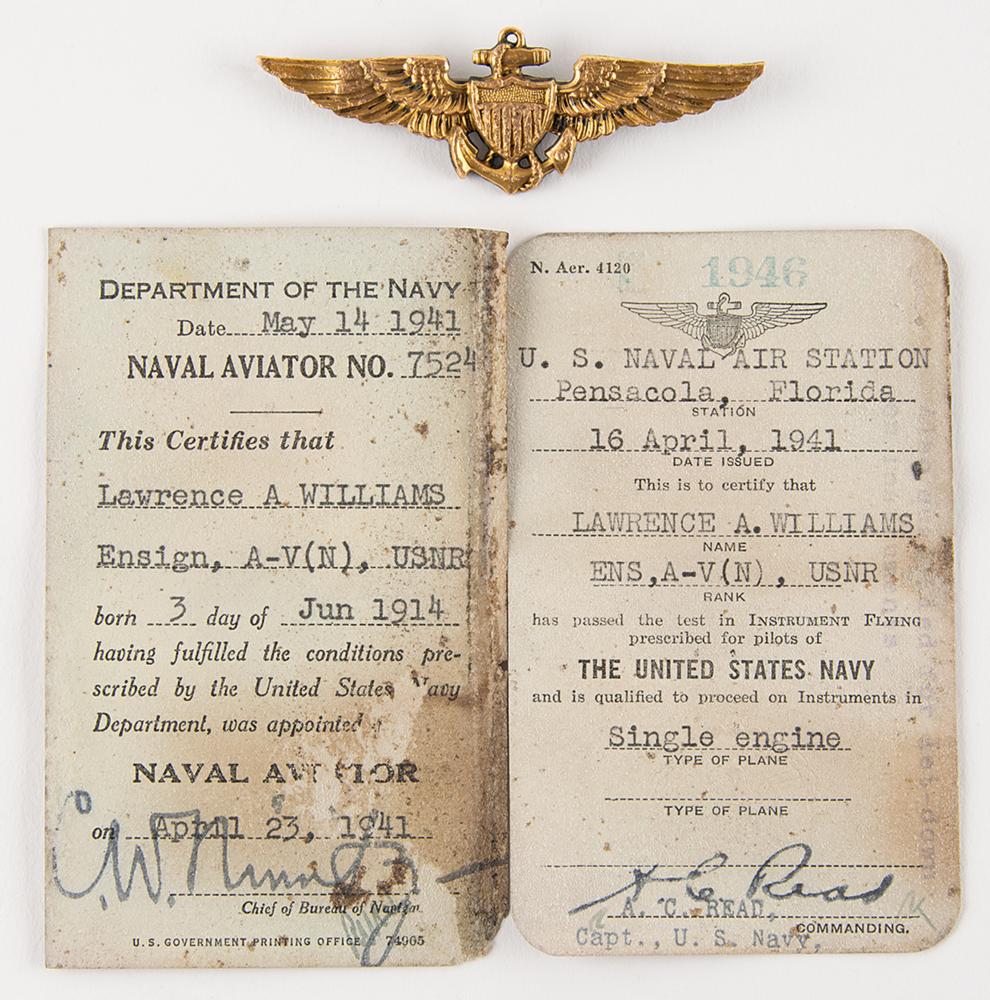 DEPARTMENT OF THE NAVY
Date May 14 1941
NAVAL AVIATOR NO. 7524
This Certifies that
Lawrence A WILLIAMS
Ensign, A-V(N), USNR
born 3 day of Jun 1914
having fulfilled the conditions pre-
scribed by the United States Navy
Department, was appointed a
NAVAL AVIATOR
on April 23, 1941
Chief of Bureau of Navign.
U.S. GOVERNMENT PRINTING OFFICE 74965
N. Aer. 4120 1946
U. S. NAVAL AIR STATION
Pensacola, Florida
STATION
16 April, 1941
DATE ISSUED
This is to certify that
LAWRENCE A. WILLIAMS
NAME
ENS,A-V(N), USNR
RANK
has passed the test in INSTRUMENT FLYING
prescribed for pilots of
THE UNITED STATES NAVY
and is qualified to proceed on Instruments in
Single engine
TYPE OF PLANE
TYPE OF PLANE
A C Read
A. C. READ,
COMMANDING.
Capt., U. S. Navy,